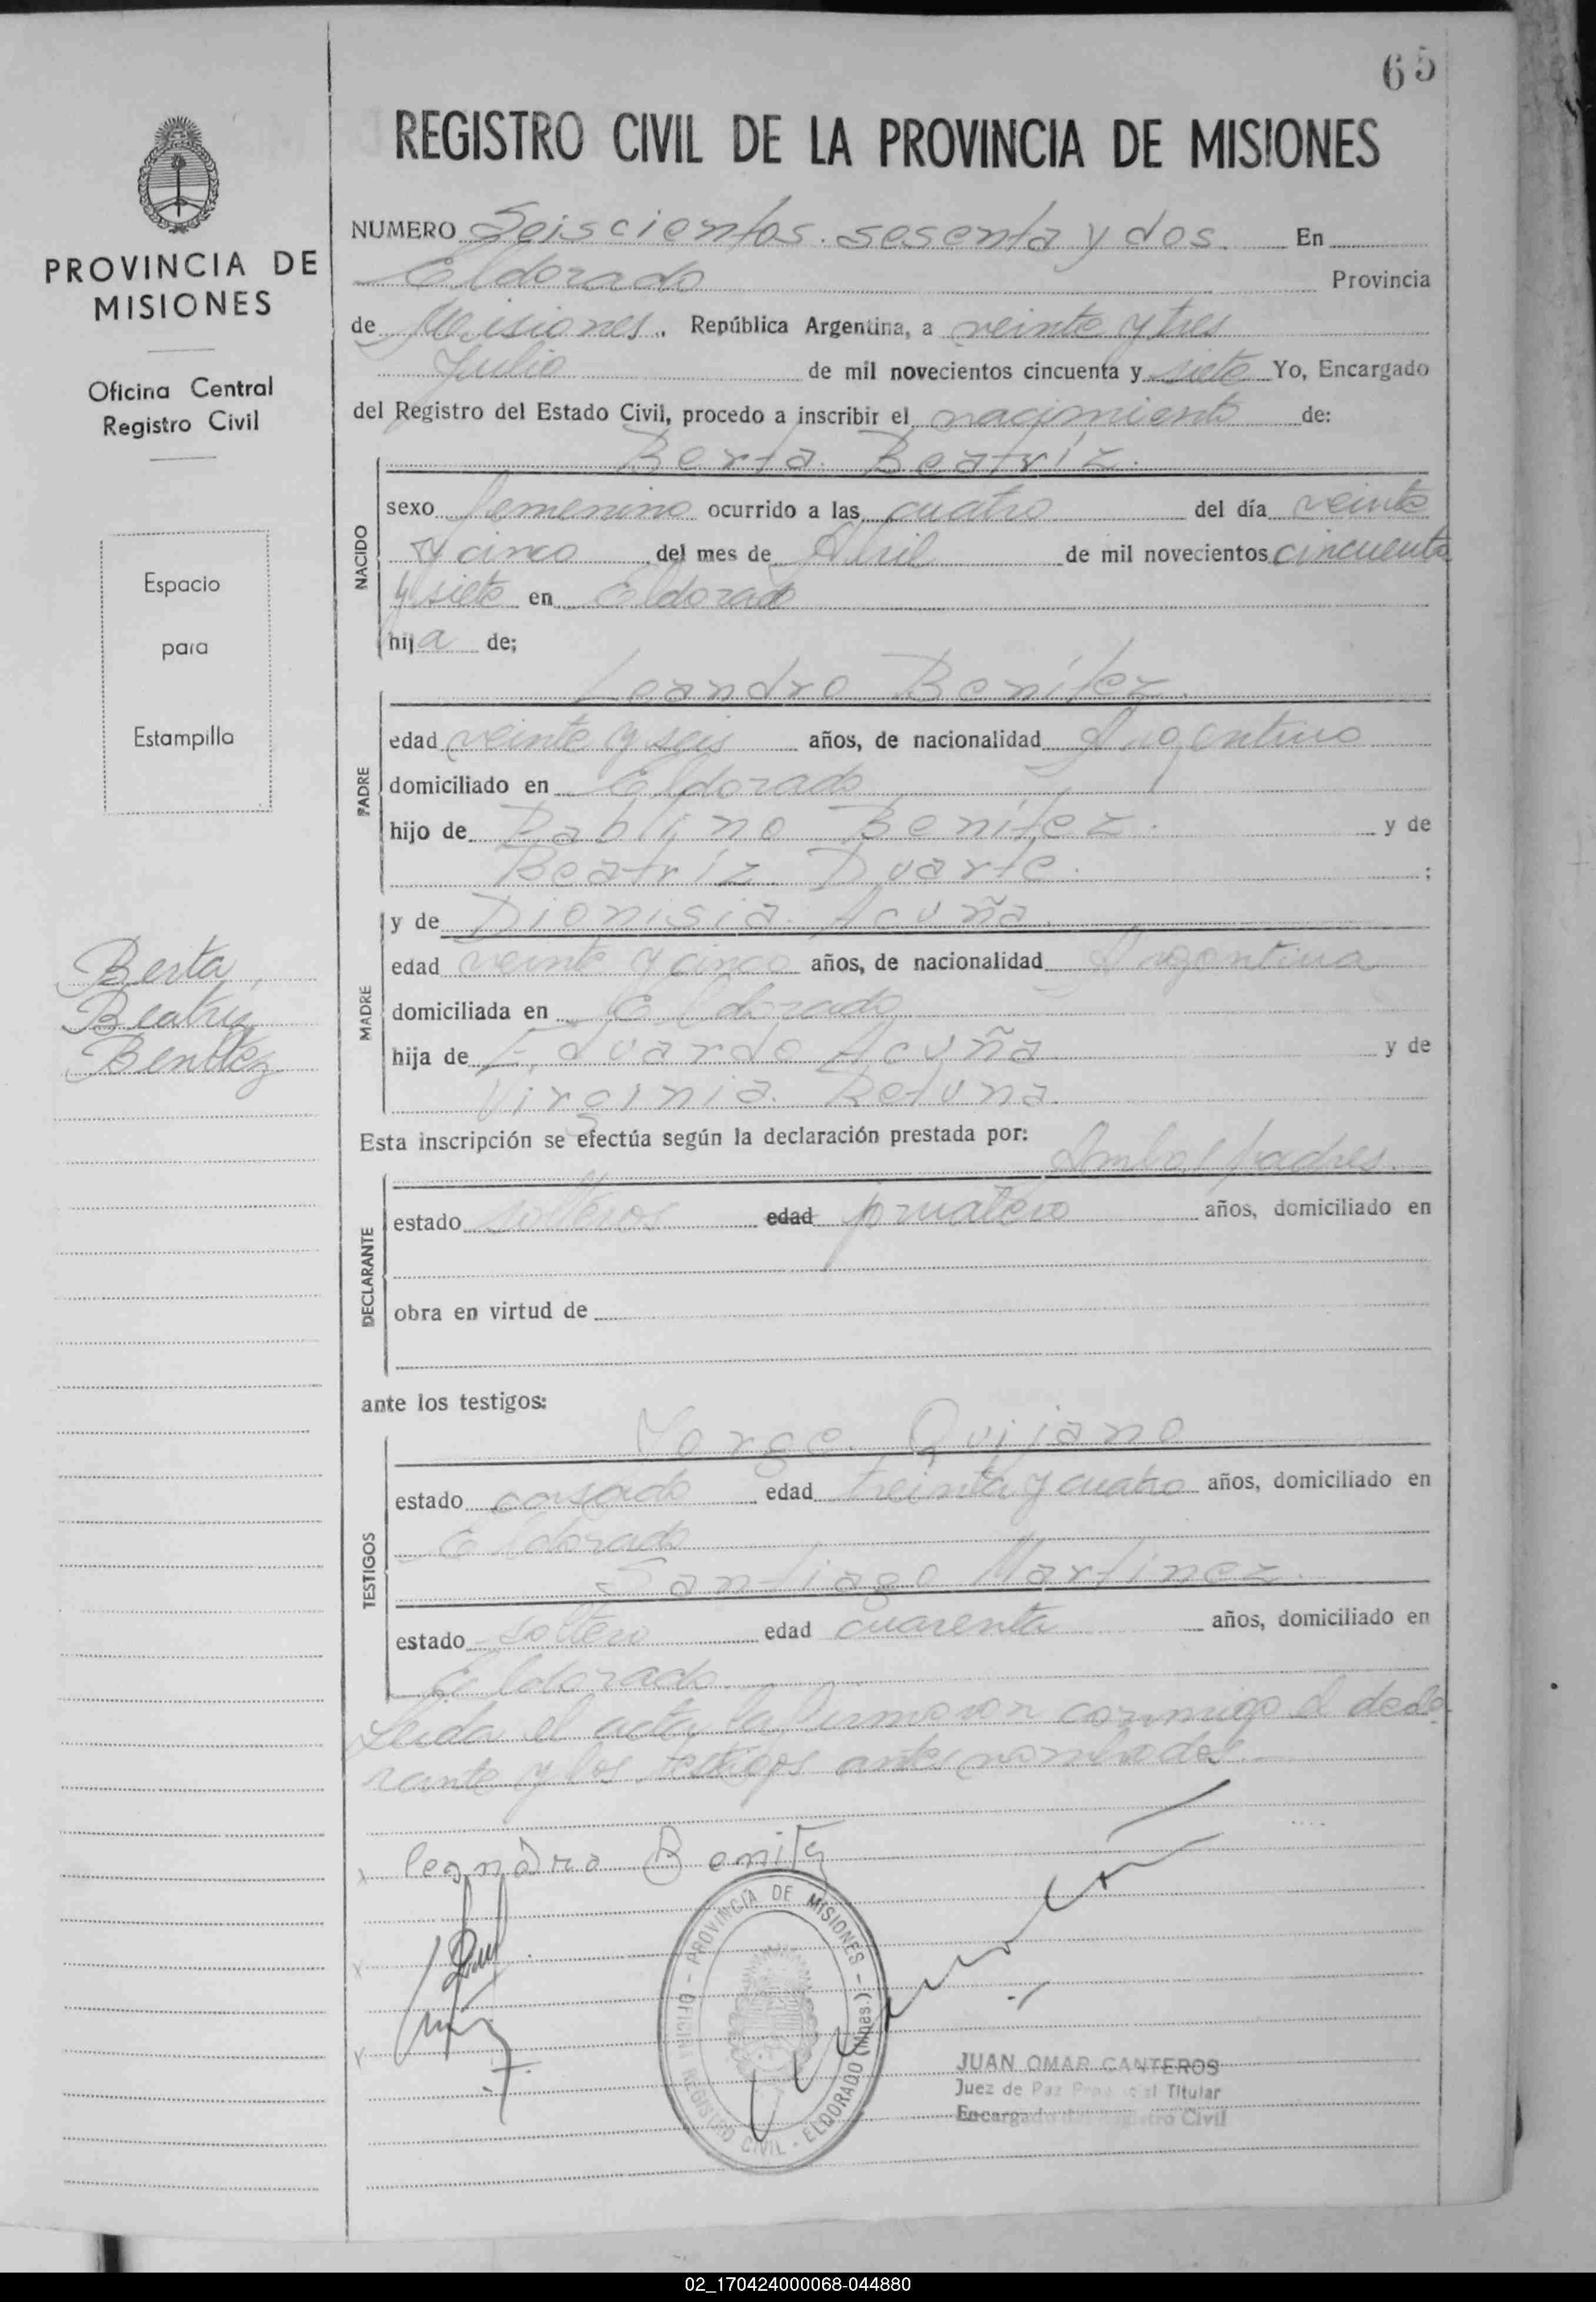 65
REGISTRO CIVIL DE LA PROVINCIA DE MISIONES
PROVINCIA DE
MISIONES
Oficina Central
Registro Civil
Espacio
para
Estampilla
Berta
Beatriz
Benítez
NUMERO Seiscientos sesenta y dos. En
Eldorado Provincia
de Misiones. República Argentina, a veinte y tres
Julio de mil novecientos cincuenta y siete Yo, Encargado
del Registro del Estado Civil, procedo a inscribir el nacimiento de:
Berta Beatríz.
NACIDO
sexo femenino ocurrido a las cuatro del día veinte
y cinco del mes de Abril de mil novecientos cincuenta
y siete en Eldorado
hija de;
Leandro Benítez.
PADRE
edad veinte y seis años, de nacionalidad Argentino
domiciliado en Eldorado
hijo de Pablino Benítez. y de
Beatríz Duarte. ;
MADRE
y de Dionisia Acuña.
edad veinte y cinco años, de nacionalidad Argentina
domiciliada en Eldorado
hija de Eduardo Acuña y de
Virginia Retuna.
Esta inscripción se efectúa según la declaración prestada por:
Ambos padres.
DECLARANTE
estado solteros edad años, domiciliado en
obra en virtud de
ante los testigos:
Jorge Quijano
TESTIGOS
estado casado edad treinta y cuatro años, domiciliado en
Eldorado
Santiago Martinez.
estado soltero edad cuarenta años, domiciliado en
Eldorado.
Leida el acta la firmaron conmigo el decla
rante y los testigos antes nombrados.
Leandro Benitez
OFICINA REGISTRO CIVIL - ELDORADO (Mnes.) - PROVINCIA DE MISIONES -
JUAN OMAR CANTEROS
Juez de Paz Titular
Encargado del Registro Civil
02_170424000068-044880